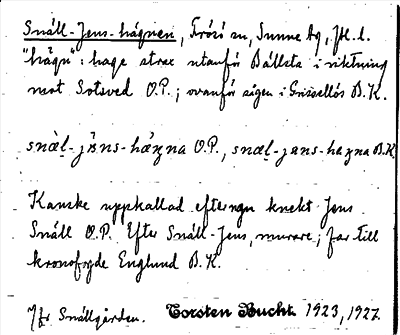 Snäll-Jens-hägnen, Frösö sn, Sunne tg, Jtl. l.
"hägn": hage strax utanför Bällsta i riktning
mot Sotsved O.P.; ovanför sågen i Grisellös B.K.
O.P., B.K.
Kanske uppkallad efter ngn knekt Jens
Snäll O.P. Efter Snäll-Jens, murare; far till
kronofogde Englund B.K.
Jfr Snällgården. Torsten Bucht. 1923, 1927.